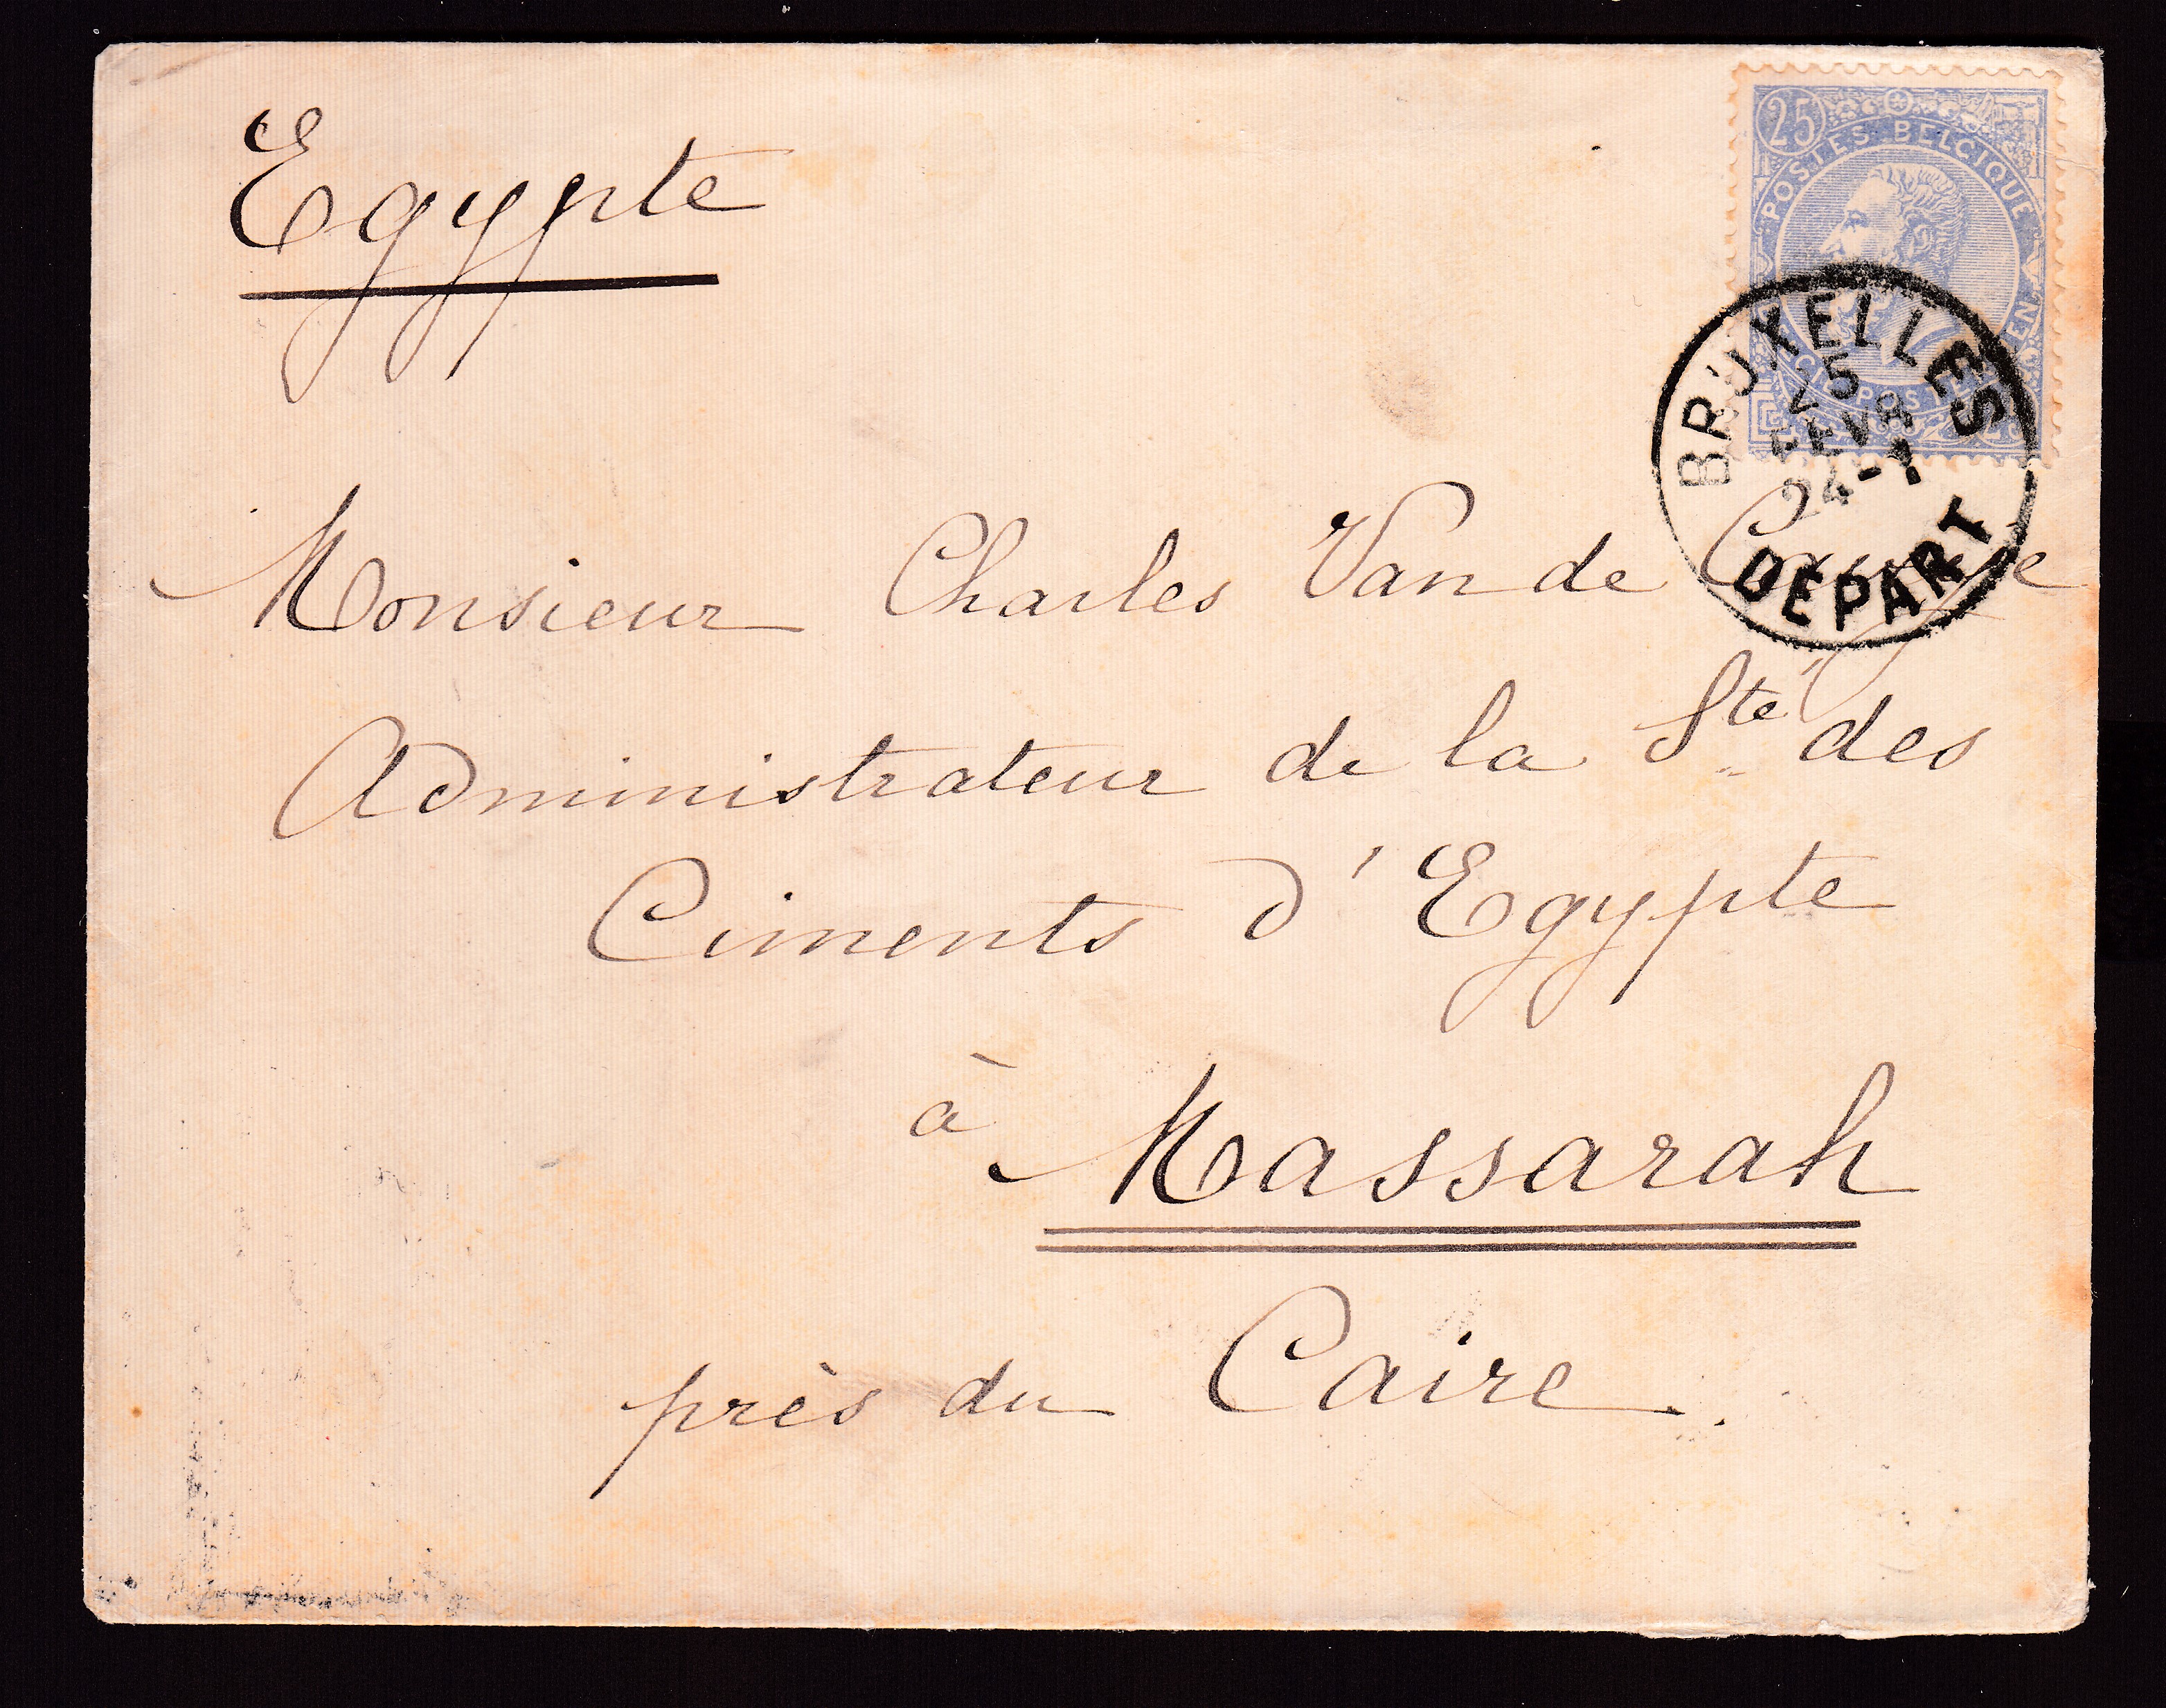 Egypte
25
POSTES BELGIQUE
BRUXELLES
25
FEVR
24-1
DEPART
Monsieur Charles Van de
Administrateur de la Sté des
Ciments d'Egypte
à Massarah
près du Caire.